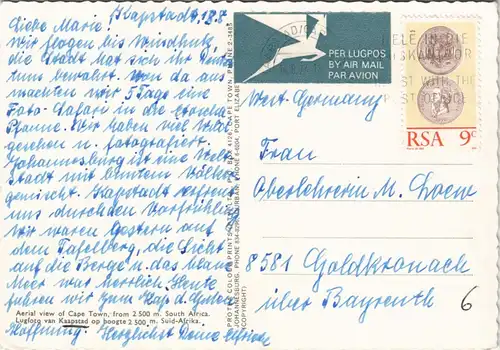 Kapstadt, 18.8.
Liebe Marie!
Wir flogen bis Windhuk,
die Stadt hat sich ihr Deutsch-
tum bewahrt. Von da aus
machten wir 5 Tage eine
Foto-Safari in die Etoscha
Pfanne. Wir haben viel Wild
gesehen u. fotografiert.
Johannesburg ist eine Welt-
Stadt mit buntem Völker-
gemisch. Kapstadt erfreut
uns durch den Vorfrühling
Wir waren gestern auf
dem Tafelberg, die Sicht
auf die Berge u. das blaue
Meer war herrlich. Heute
fahren wir zum Kap d. guten
Hoffnung. Herzlichst Deine Elfriede
Aerial view of Cape Town, from 2 500 m. South Africa.
Lugfoto van Kaapstad op hoogte 2 500 m. Suid-Afrika.
PER LUGPOS
BY AIR MAIL
PAR AVION
RSA 9c
West-Germany
Frau
Oberlehrerin M. Loew
8581 Goldkronach
über Bayreuth
6
JOHANNESBURG, PHONE
(COPYRIGHT)